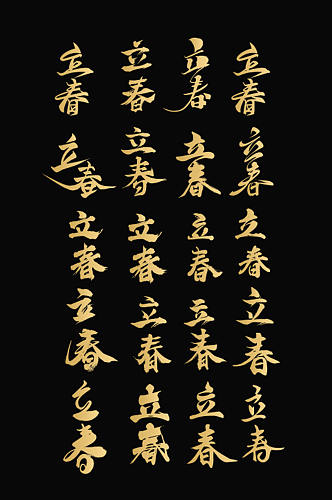 立春 立春 立春 立春
立春 立春 立春 立春
立春 立春 立春 立春
立春 立春 立春 立春
立春 立春 立春 立春